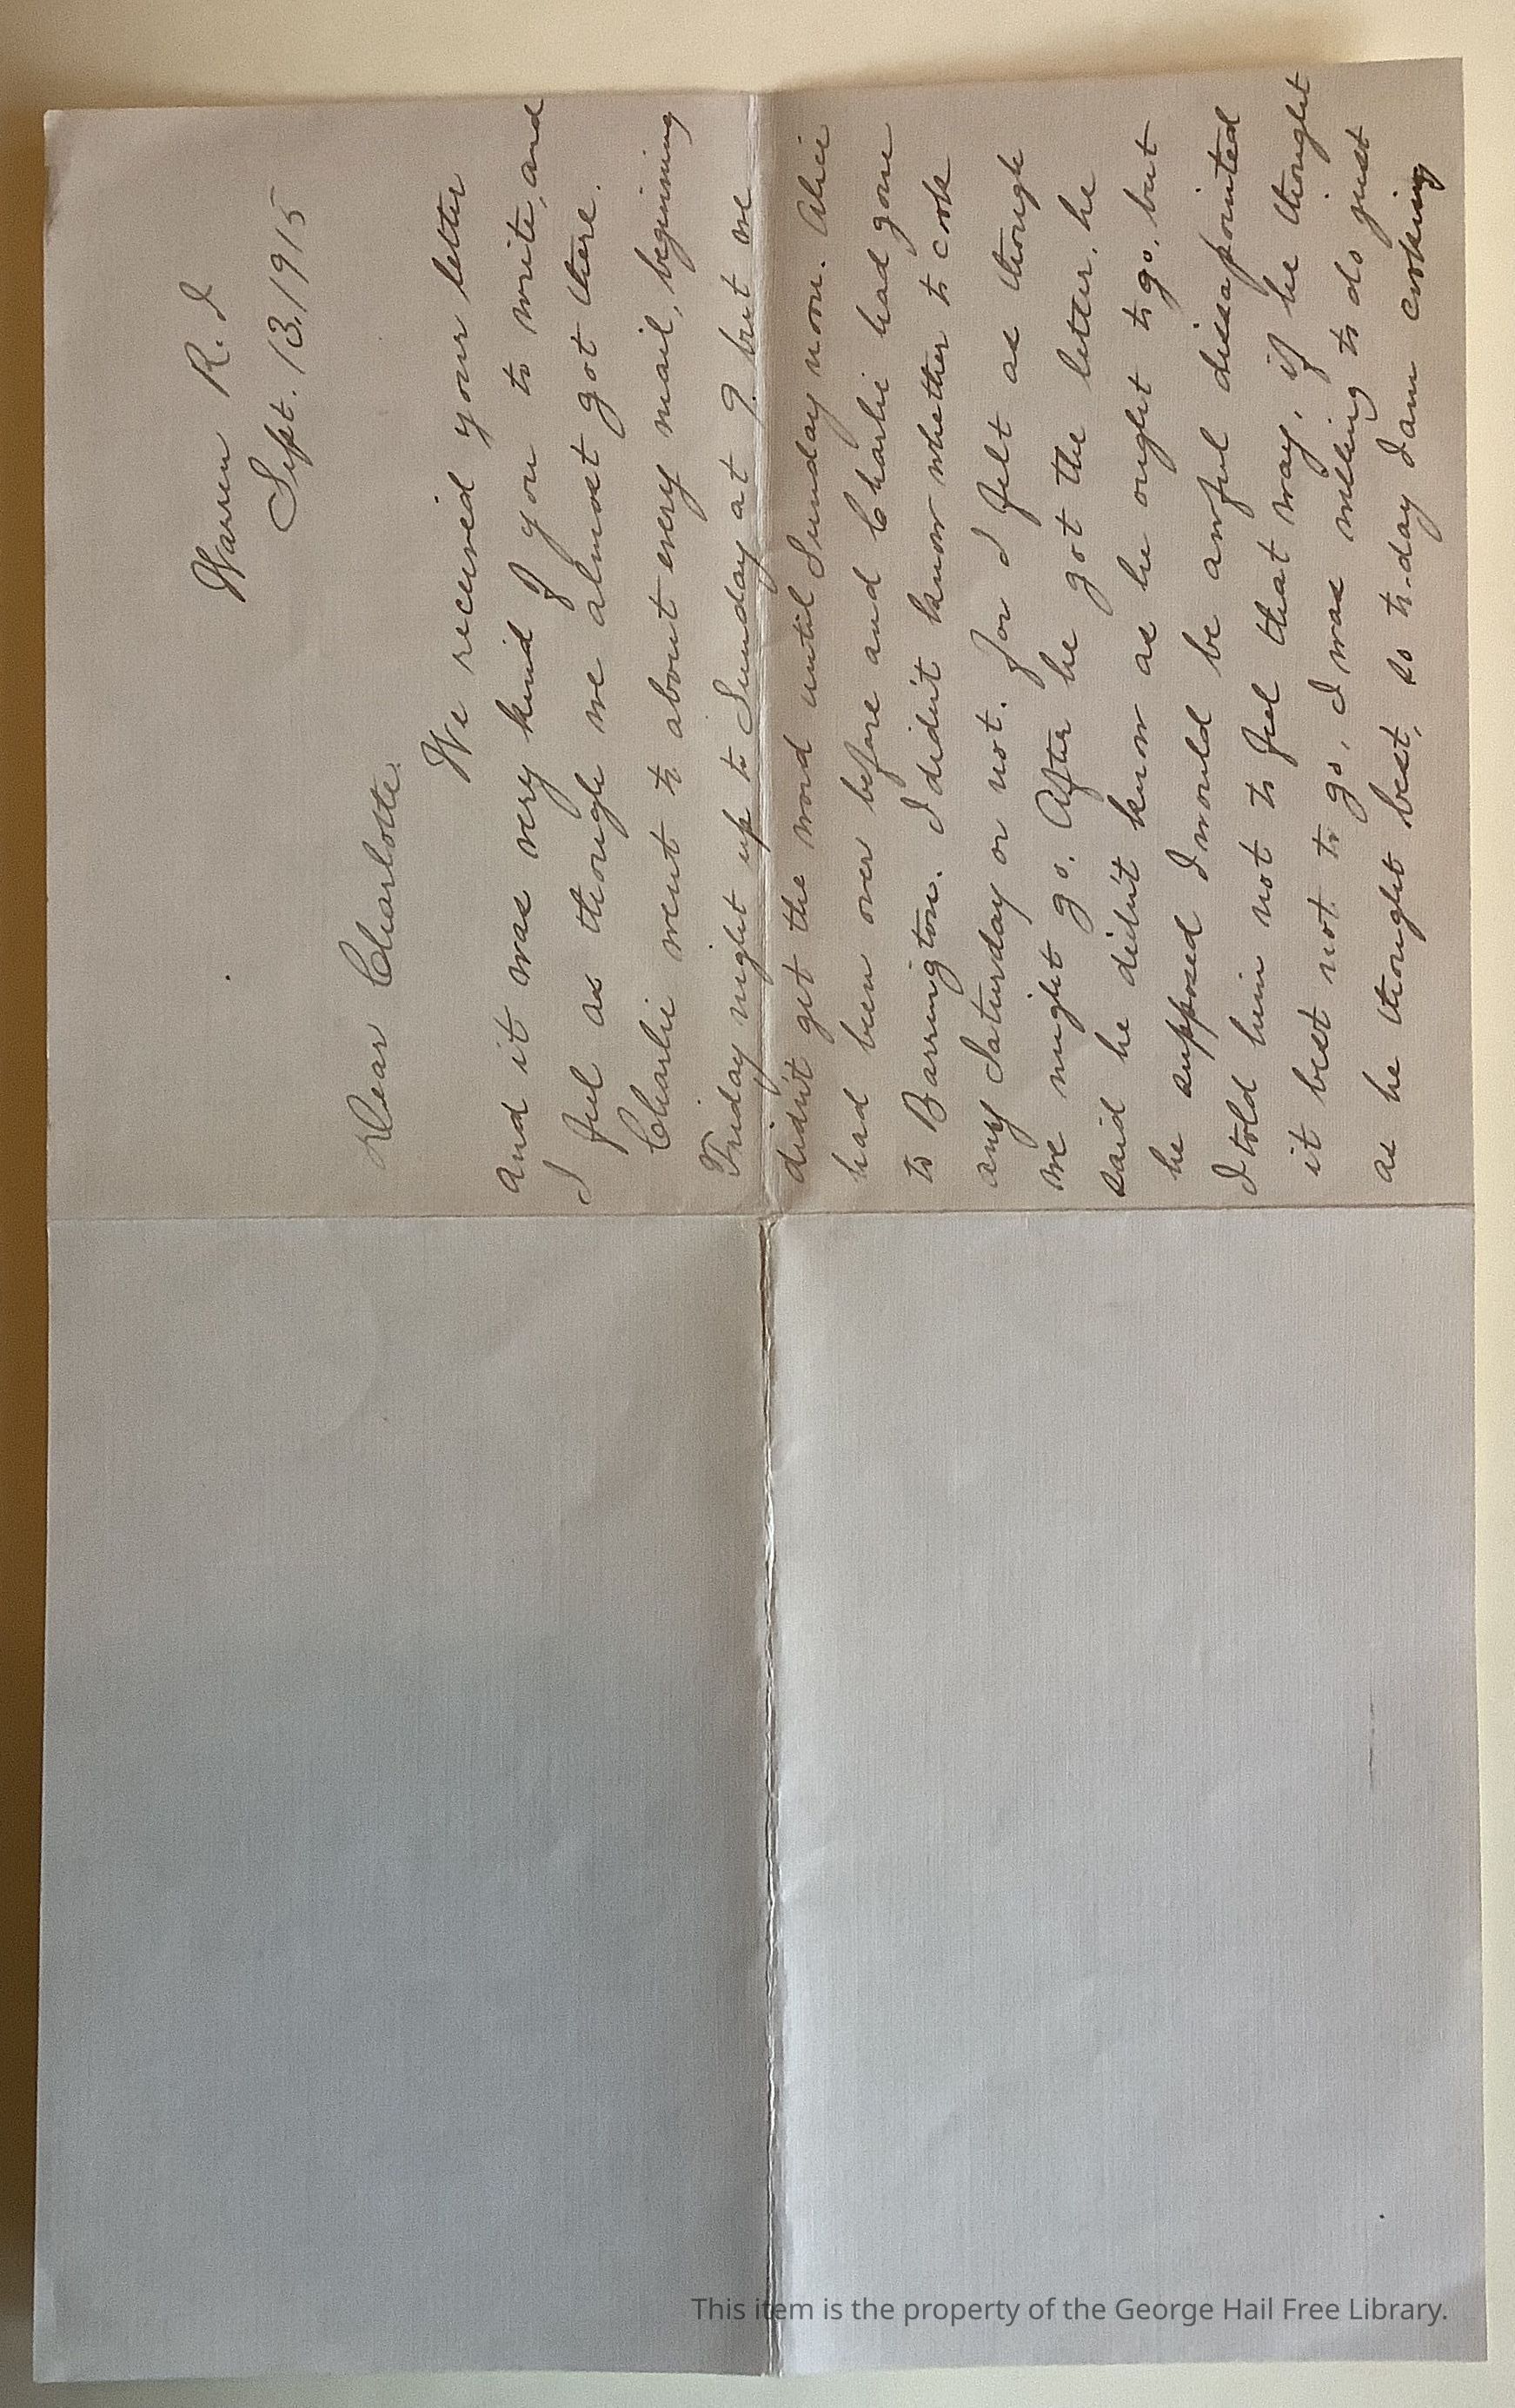 Warren R. I
Sept. 13, 1915
Dear Charlotte.
We received your letter
and it was very kind of you to write, and
I feel as though we almost got there.
Charlie went to about every mail, beginning
Friday night up to Sunday at 9. but we
didn't get the word until Sunday noon. Alice
had been over before and Charlie had gone
to Barrington. I didn't know whether to cook
any Saturday or not. for I felt as though
we might go. After he got the letter, he
said he didn't know as he ought to go, but
he supposed I would be awful dissapointed
I told him not to feel that way, if he thought
it best not to go, I was willing to do just
as he thought best, so to-day I am cooking
This item is the property of the George Hail Free Library.